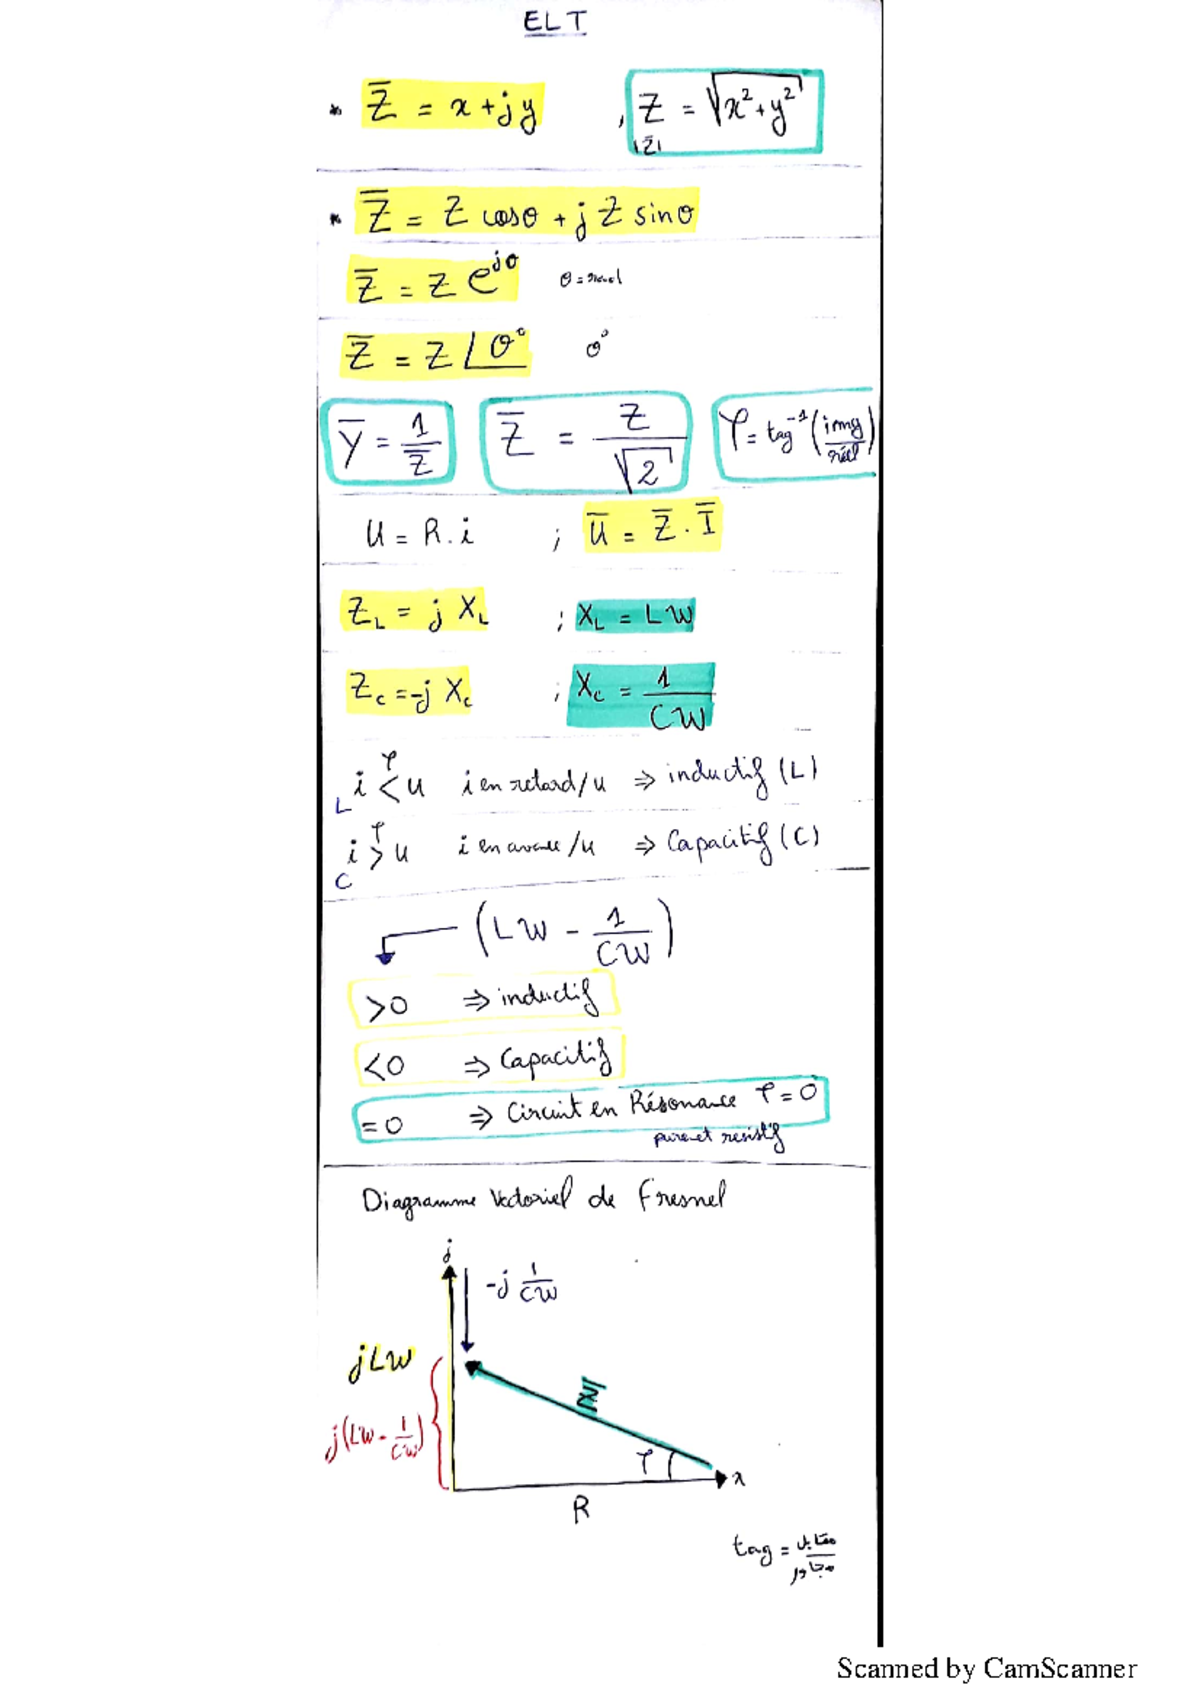 ELT
* Z̅ = x + jy , Z = √x²+y²
|Z̅|
* Z̅ = Z cosθ + j Z sinθ
Z̅ = Z e^jθ θ =
Z̅ = Z ∠θ° θ°
Y̅ = 1/Z̅ Z̅ = Z/√2 φ = tag⁻¹(img/réel)
U = R.i ; U̅ = Z̅ . I̅
Z_L = j X_L ; X_L = LW
Z_C = -j X_C ; X_C = 1/CW
i <^φ u i en retard/u ⇒ inductif (L)
L
i >^φ u i en avance/u ⇒ Capacitif (C)
C
(LW - 1/CW)
>0 ⇒ inductif
<0 ⇒ Capacitif
=0 ⇒ Circuit en Résonance φ = 0
purement resistif
Diagramme Vectoriel de Fresnel
j
-j 1/CW
jLW
|Z̅|
j(LW - 1/CW)
φ
x
R
tag = مقابل/مجاور
Scanned by CamScanner